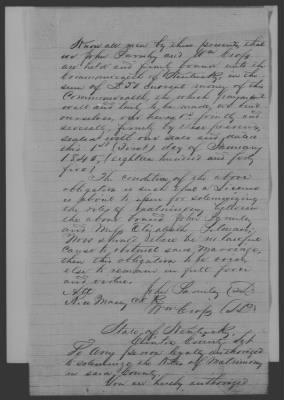 Know all men by these presents that
we John Parmley and Wm Cross
are held and firmly bound unto the
Commonwealth of Kentucky in the
sum of £50 current money of the
Commonwealth, the which payment
well and truly to be made, we bind
ourselves, our heirs &c jointly and
severally, firmly by these presents
sealed with our seals and dated
this 1st (First) day of January
1845, (eighteen hundred and forty
five)
The condition of the above
obligation is such that a License
is about to issue for solemnizing
the rites of Matrimony between
the above bound John Parmley
and Miss Elizabeth
Now should there be no lawful
cause to obstruct said marriage,
then this obligation to be void
else to remain in full force
and virtue.
Att John Parmley
Rice Maxey Wm Cross
State of Kentucky,
Clinton County Sct
To Any person legally authorized
to solemnize the Rites of Matrimony
in said County.
You are hereby authorized